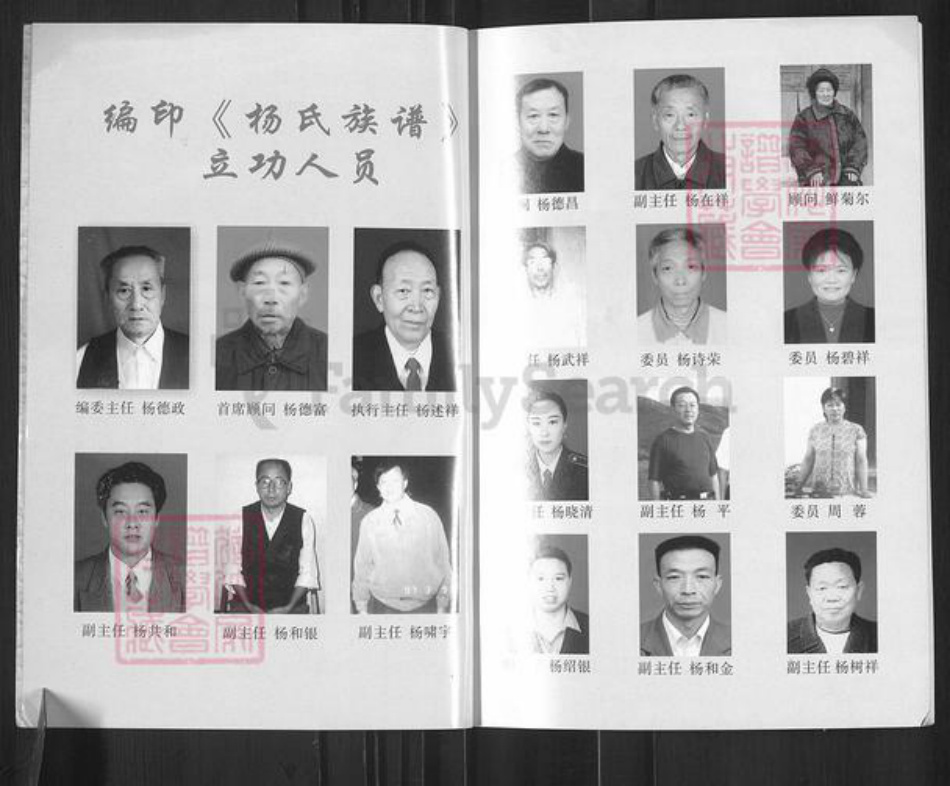 编印《杨氏族谱》
立功人员
编委主任 杨德政
首席顾问 杨德富
执行主任 杨述祥
副主任 杨共和
副主任 杨和银
副主任 杨啸宇
杨德昌
副主任 杨在祥
顾问 鲜菊尔
任 杨武祥
委员 杨诗荣
委员 杨碧祥
任 杨晓清
副主任 杨 平
委员 周 蓉
杨绍银
副主任 杨和金
副主任 杨树祥
FamilySearch